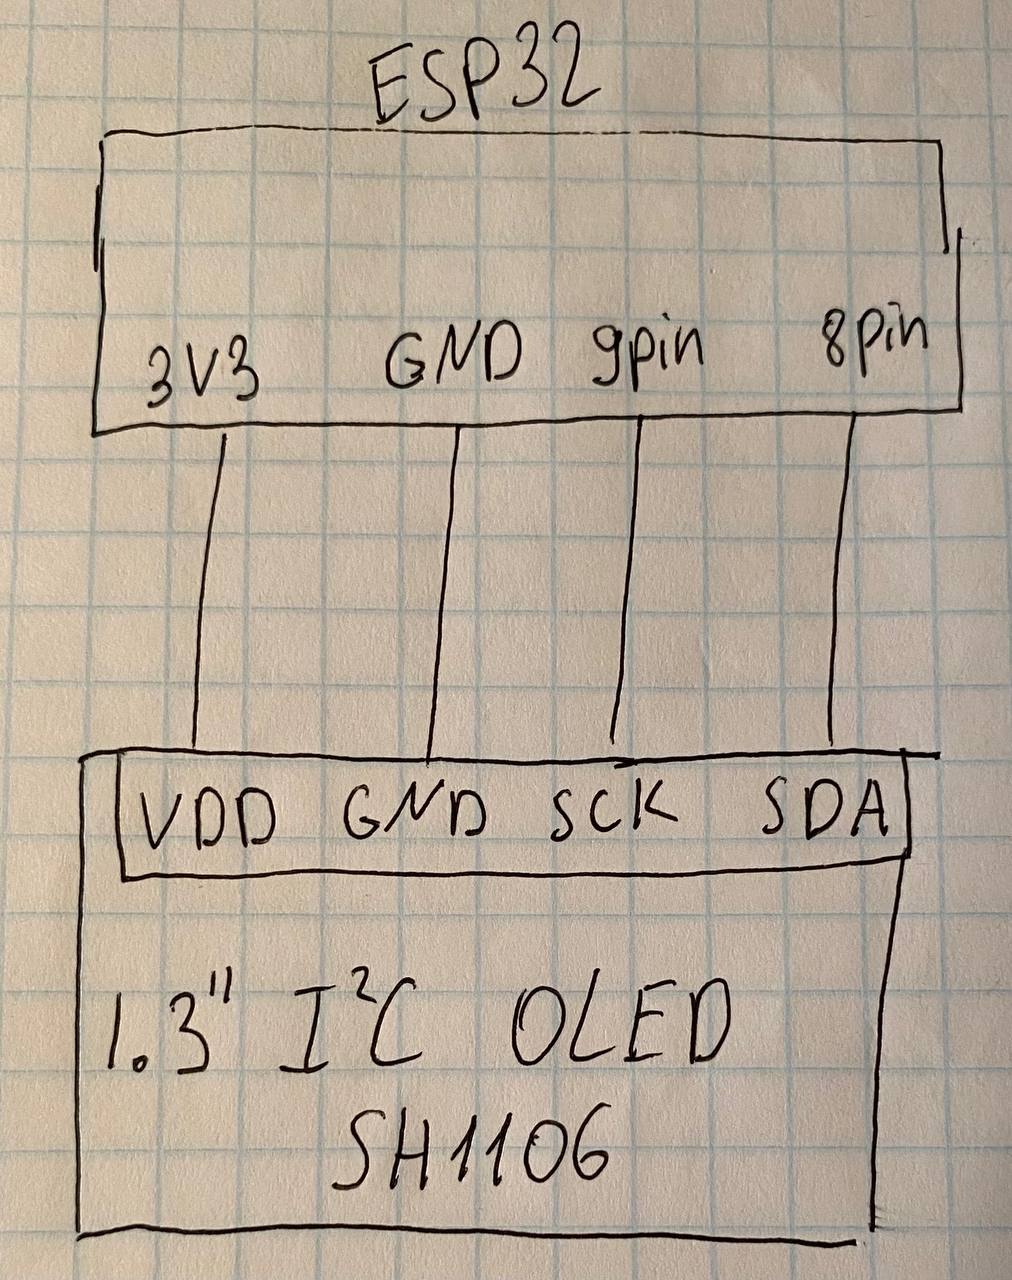 ESP32
3V3 GND 9pin 8pin
VDD GND SCK SDA
1.3" I²C OLED
SH1106